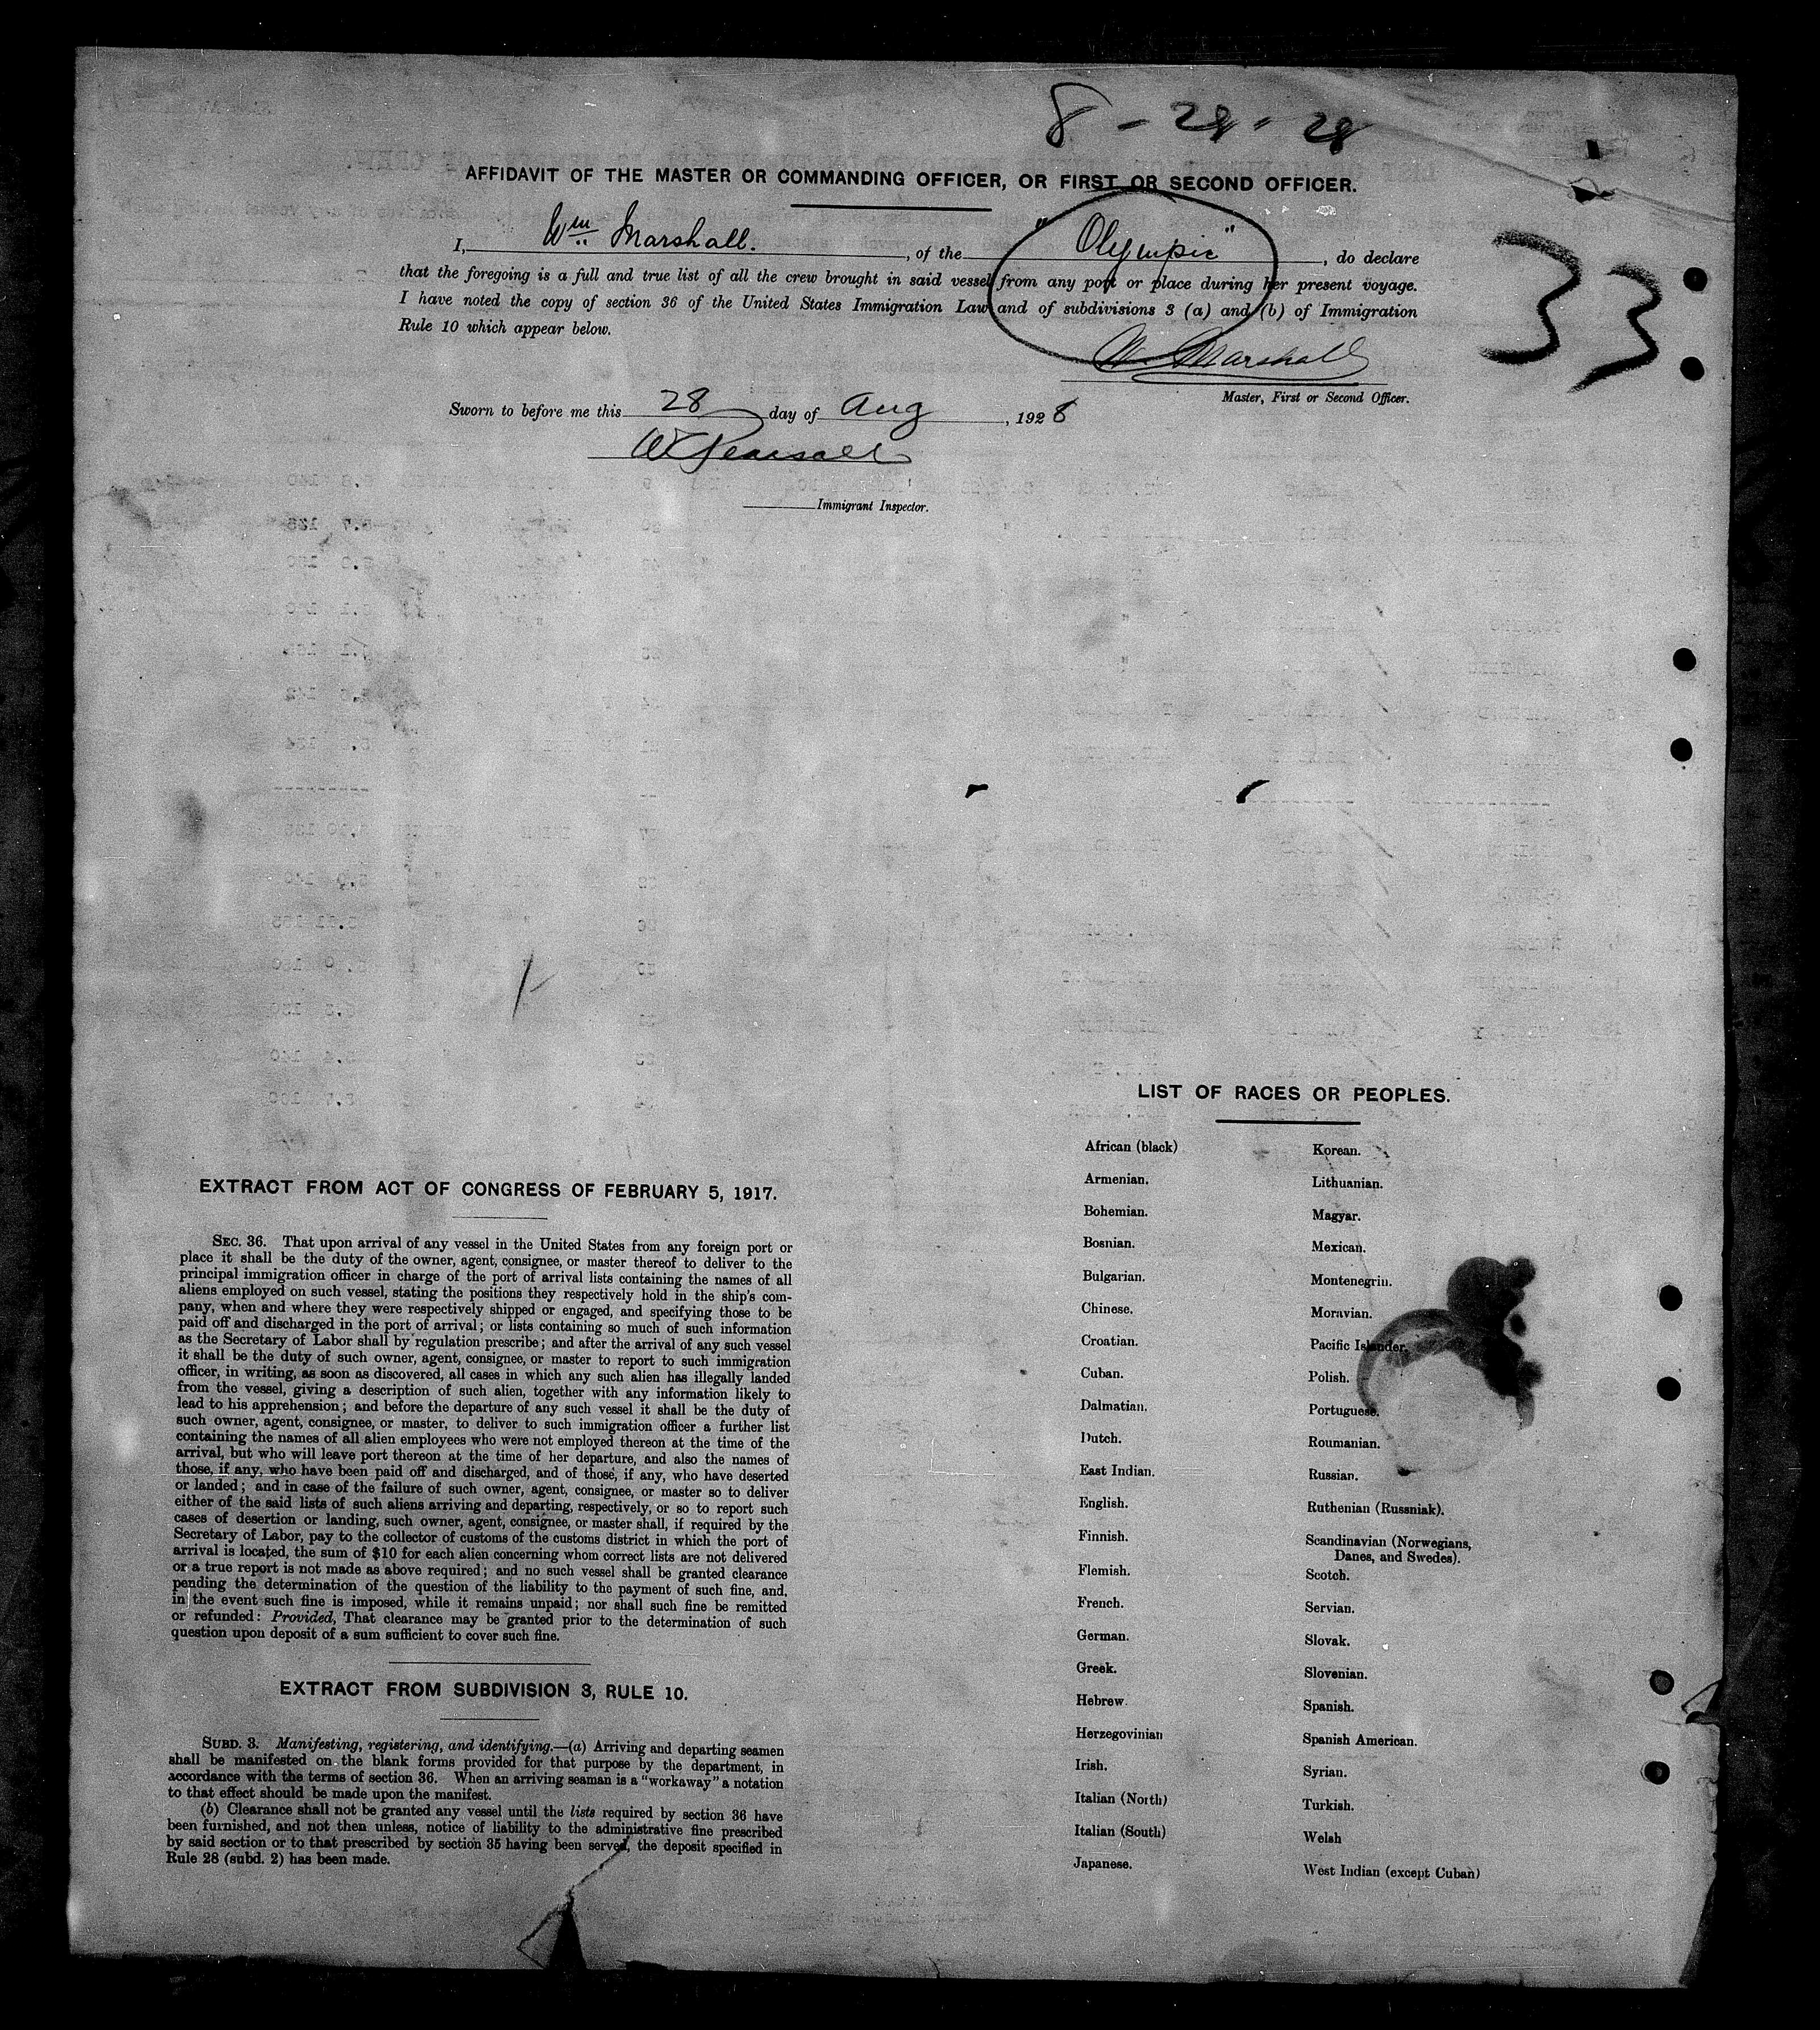 8 - 28 - 28
AFFIDAVIT OF THE MASTER OR COMMANDING OFFICER, OR FIRST OR SECOND OFFICER.
I, Wm Marshall. , of the "Olympic" , do declare
that the foregoing is a full and true list of all the crew brought in said vessel from any port or place during her present voyage.
I have noted the copy of section 36 of the United States Immigration Law and of subdivisions 3 (a) and (b) of Immigration
Rule 10 which appear below.
33
W Marshall
Master, First or Second Officer.
Sworn to before me this 28 day of Aug , 1928
W Pearsall
Immigrant Inspector.
EXTRACT FROM ACT OF CONGRESS OF FEBRUARY 5, 1917.
SEC. 36. That upon arrival of any vessel in the United States from any foreign port or
place it shall be the duty of the owner, agent, consignee, or master thereof to deliver to the
principal immigration officer in charge of the port of arrival lists containing the names of all
aliens employed on such vessel, stating the positions they respectively hold in the ship's com-
pany, when and where they were respectively shipped or engaged, and specifying those to be
paid off and discharged in the port of arrival; or lists containing so much of such information
as the Secretary of Labor shall by regulation prescribe; and after the arrival of any such vessel
it shall be the duty of such owner, agent, consignee, or master to report to such immigration
officer, in writing, as soon as discovered, all cases in which any such alien has illegally landed
from the vessel, giving a description of such alien, together with any information likely to
lead to his apprehension; and before the departure of any such vessel it shall be the duty of
such owner, agent, consignee, or master, to deliver to such immigration officer a further list
containing the names of all alien employees who were not employed thereon at the time of the
arrival, but who will leave port thereon at the time of her departure, and also the names of
those, if any, who have been paid off and discharged, and of those, if any, who have deserted
or landed; and in case of the failure of such owner, agent, consignee, or master so to deliver
either of the said lists of such aliens arriving and departing, respectively, or so to report such
cases of desertion or landing, such owner, agent, consignee, or master shall, if required by the
Secretary of Labor, pay to the collector of customs of the customs district in which the port of
arrival is located, the sum of $10 for each alien concerning whom correct lists are not delivered
or a true report is not made as above required; and no such vessel shall be granted clearance
pending the determination of the question of the liability to the payment of such fine, and,
in the event such fine is imposed, while it remains unpaid; nor shall such fine be remitted
or refunded: Provided, That clearance may be granted prior to the determination of such
question upon deposit of a sum sufficient to cover such fine.
EXTRACT FROM SUBDIVISION 3, RULE 10.
SUBD. 3. Manifesting, registering, and identifying.—(a) Arriving and departing seamen
shall be manifested on the blank forms provided for that purpose by the department, in
accordance with the terms of section 36. When an arriving seaman is a "workaway" a notation
to that effect should be made upon the manifest.
(b) Clearance shall not be granted any vessel until the lists required by section 36 have
been furnished, and not then unless, notice of liability to the administrative fine prescribed
by said section or to that prescribed by section 35 having been served, the deposit specified in
Rule 28 (subd. 2) has been made.
LIST OF RACES OR PEOPLES.
African (black)
Armenian.
Bohemian.
Bosnian.
Bulgarian.
Chinese.
Croatian.
Cuban.
Dalmatian.
Dutch.
East Indian.
English.
Finnish.
Flemish.
French.
German.
Greek.
Hebrew.
Herzegovinian
Irish.
Italian (North)
Italian (South)
Japanese.
Korean.
Lithuanian.
Magyar.
Mexican.
Montenegrin.
Moravian.
Pacific Islander.
Polish.
Portuguese.
Roumanian.
Russian.
Ruthenian (Russniak).
Scandinavian (Norwegians,
Danes, and Swedes).
Scotch.
Servian.
Slovak.
Slovenian.
Spanish.
Spanish American.
Syrian.
Turkish.
Welsh
West Indian (except Cuban)